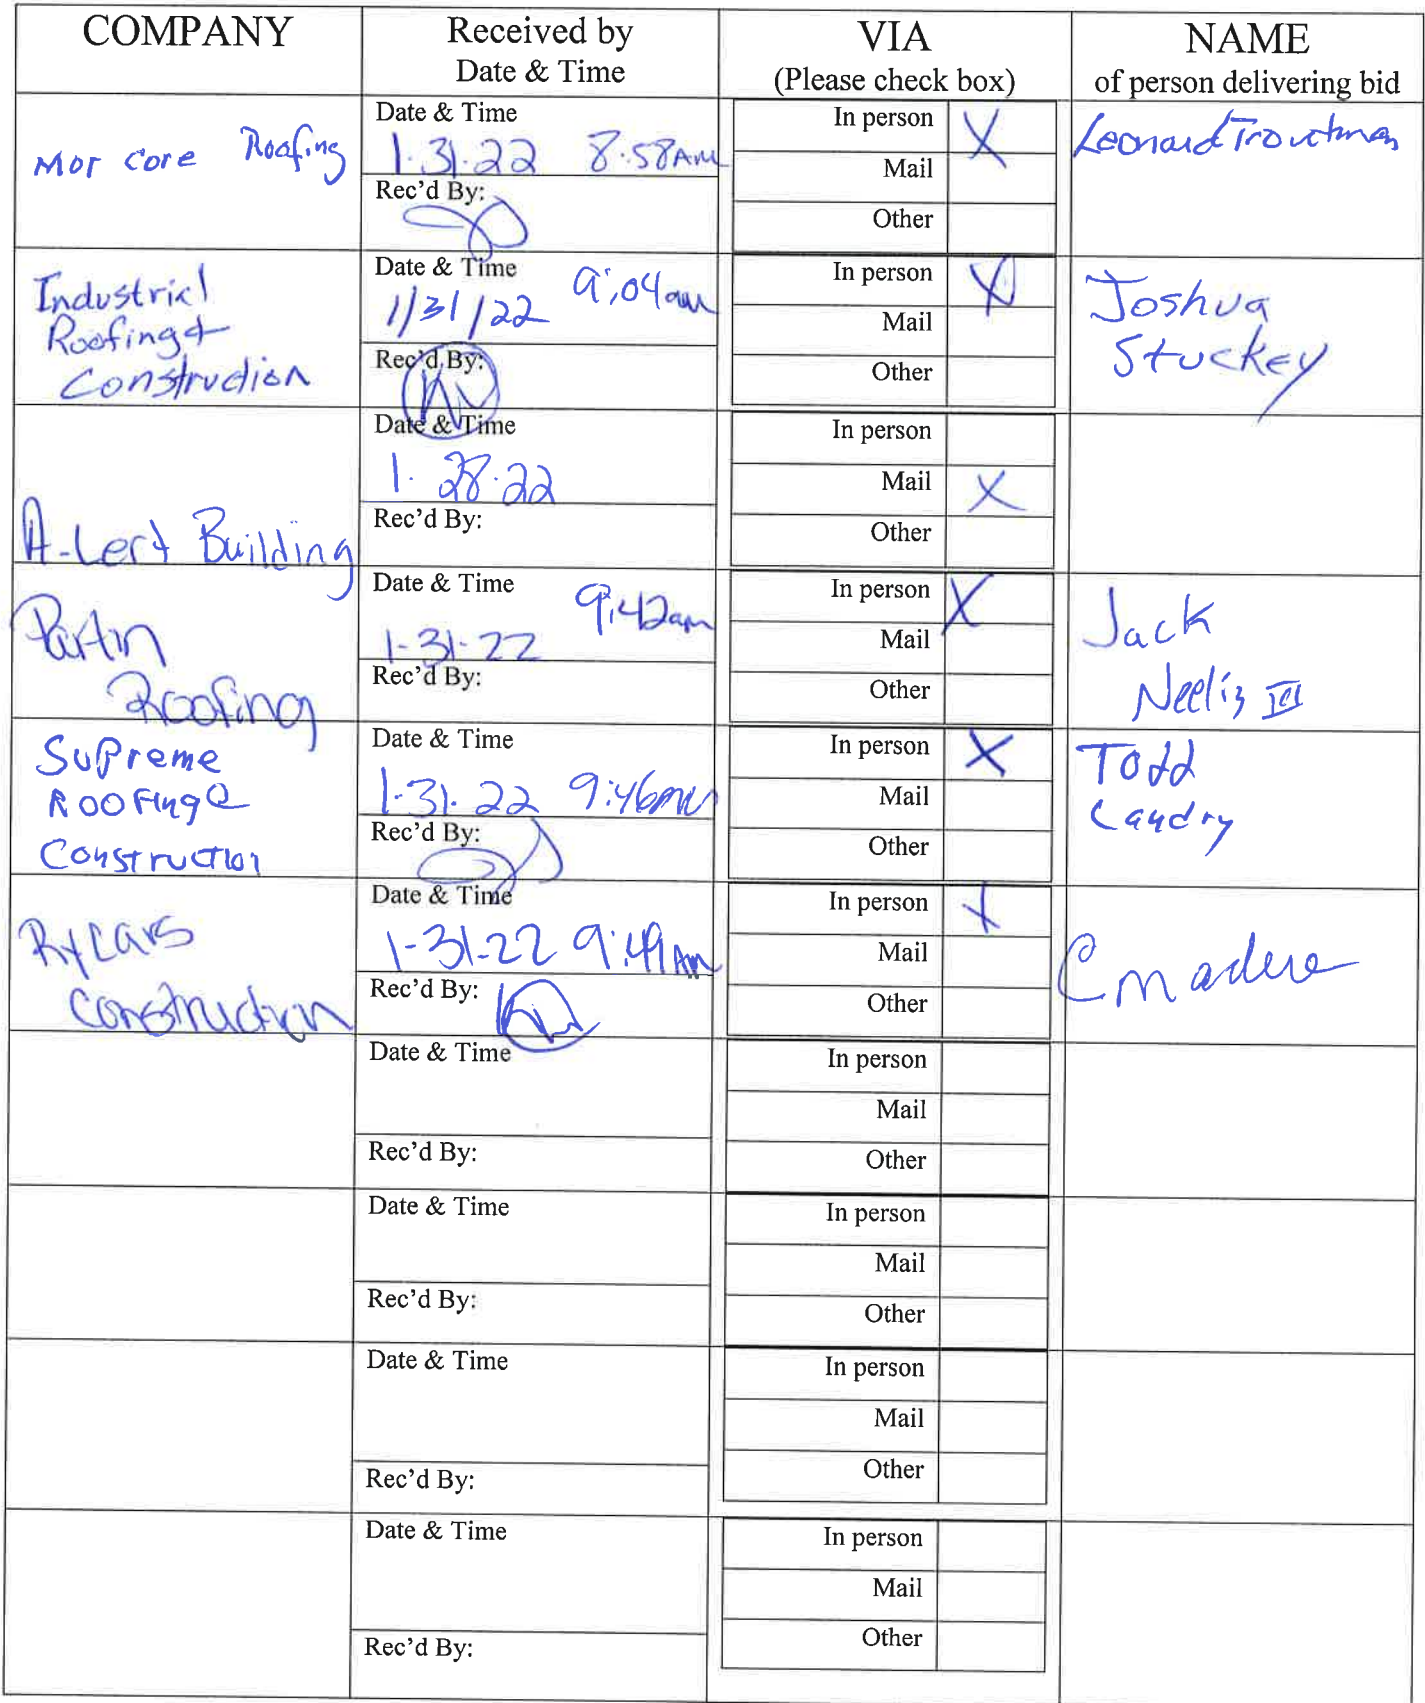 COMPANY
Received by
Date & Time
VIA
(Please check box)
NAME
of person delivering bid
Mor Core Roofing
Date & Time
1.31.22 8:58AM
Rec'd By:
In person X
Mail
Other
Leonard Troutman
Industrial
Roofing &
Construction
Date & Time
1/31/22 9:04am
Rec'd By:
In person X
Mail
Other
Joshua
Stuckey
A-Lert Building
Date & Time
1.28.22
Rec'd By:
In person
Mail X
Other
Partin
Roofing
Date & Time
9:42am
1-31-22
Rec'd By:
In person X
Mail
Other
Jack
III
Supreme
Roofing &
Construction
Date & Time
1-31-22 9:46am
Rec'd By:
In person X
Mail
Other
Todd
Landry
Rycars
Construction
Date & Time
1-31-22 9:49AM
Rec'd By:
In person X
Mail
Other
C Madere
Date & Time
Rec'd By:
In person
Mail
Other
Date & Time
Rec'd By:
In person
Mail
Other
Date & Time
Rec'd By:
In person
Mail
Other
Date & Time
Rec'd By:
In person
Mail
Other